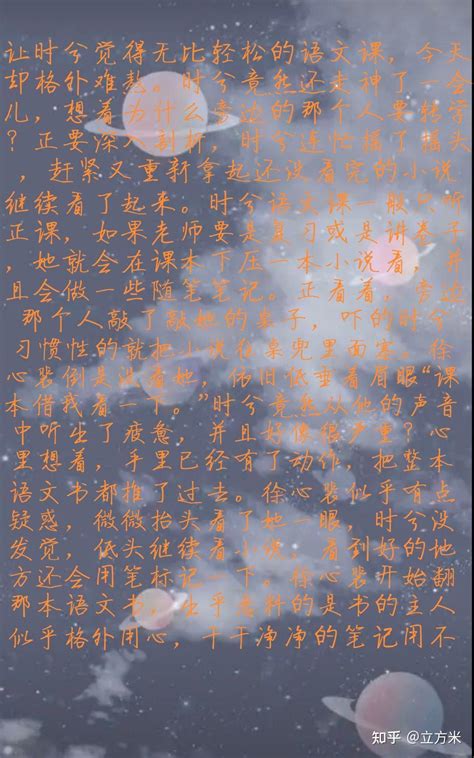 让时兮觉得无比轻松的语文课，今天
却格外难熬。时兮竟然还走神了一会
儿，想着为什么旁边的那个人要转学
？正要深入剖析，时兮连忙摇了摇头
，赶紧又重新拿起还没看完的小说
继续看了起来。时兮语文课一般只听
正课，如果老师要是复习或是讲卷子
，她就会在课本下压一本小说看，并
且会做一些随笔笔记。正看着，旁边
那个人敲了敲她的桌子，吓的时兮
习惯性的就把小说往桌兜里面塞，徐
心裴倒是没看她，依旧低垂着眉眼“课
本借我看一下。”时兮竟然从他的声音
中听出了疲惫，并且好像很严重？心
里想着，手里已经有了动作，把整本
语文书都推了过去。徐心裴似乎有点
疑惑，微微抬头看了她一眼，时兮没
发觉，低头继续看小说，看到好的地
方还会用笔标记一下。徐心裴开始翻
那本语文书，出乎意料的是书的主人
似乎格外用心，干干净净的笔记用不
知乎 @立方米